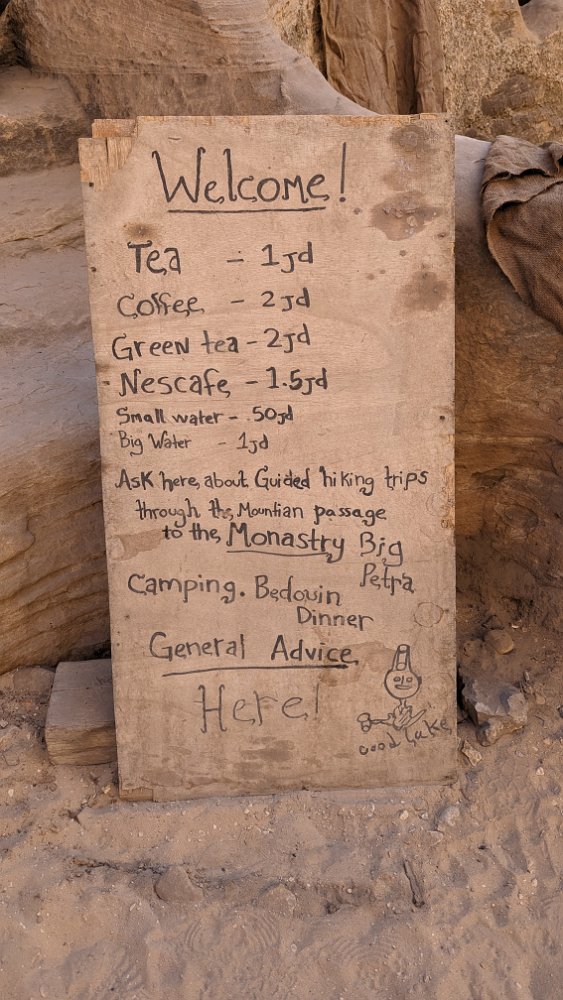 Welcome!
Tea - 1jd
Coffee - 2jd
Green tea - 2jd
Nescafe - 1.5jd
Small water - .50jd
Big Water - 1jd
Ask here, about Guided hiking trips
through the Mountian passage
to the, Monastry Big
Petra
Camping. Bedouin
Dinner
General Advice
Here!
Good Luke